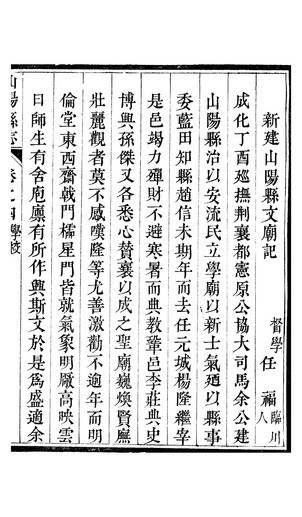 新建山陽縣文廟記
督學任　福臨川人
成化丁酉廵撫荆襄都憲原公協大司馬余公建
山陽縣治以安流民立學廟以新士氣廼以縣事
委藍田知縣趙信未期年而去任元城楊隆繼宰
是邑竭力殫財不避寒暑而典教鞏邑李莊典史
博興孫傑又各悉心賛襄以成之聖廟巍煥賢廡
壯麗觀者莫不感嘆隆等尤善激勸不逾年而明
倫堂東西齋戟門櫺星門皆就氣象明厰高映雲
日師生有舍庖廪有所作興斯文於是爲盛適余
山陽縣志
卷之四學校